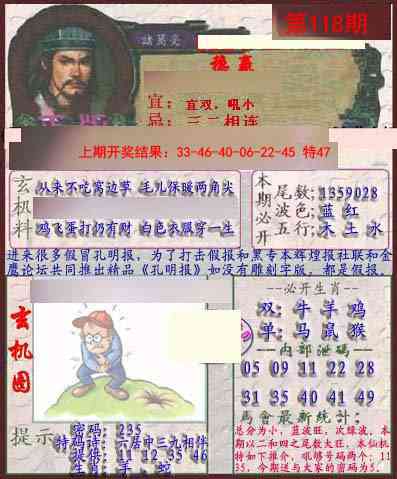 第118期
諸葛亮
稳赢
宜：宜双，吼小
忌：三二相连
上期开奖结果：33-46-40-06-22-45 特47
玄机料
从来不吃窝边草 毛儿保暖两角尖
鸡飞蛋打仍有财 白色衣服穿一生
本期必开
尾数：1359028
波色：蓝 红
五行：木 土 水
进来很多假冒孔明报，为了打击假报和黑专本辉煌报社联和金
鹰论坛共同推出精品《孔明报》如没有雕刻字版，都是假报。
玄机图
提示
密码：235
特码诗：六居中三九相伴
提供：11 12 35 46
生肖：羊、蛇
--必开生肖--
双：牛 羊 鸡
单：马 鼠 猴
--内部泄码--
05 09 11 22 28
31 35 40 41 49
馬會最新統计：
总分为小，蓝波旺，次绿波，本
期以二和四之尾数大旺，本仙机
特如下推介，吼够号码两个：11
35，今期送与大家的密码为5。